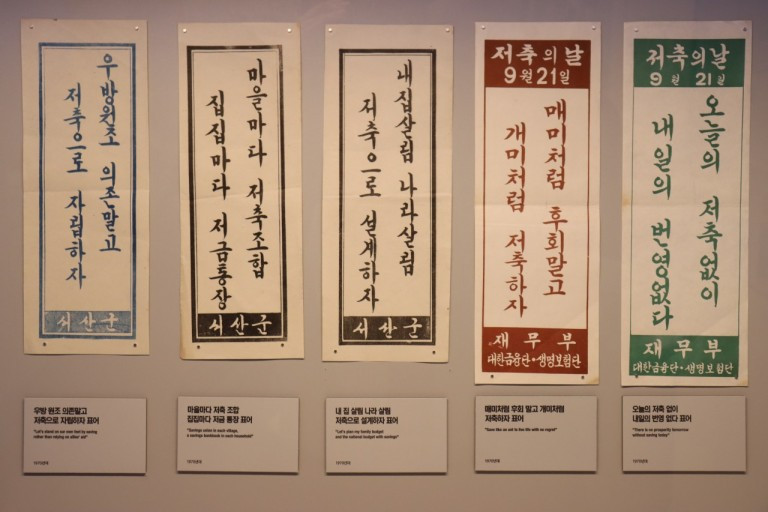 우방원조 의존말고
저축으로 자립하자
서산군
마을마다 저축조합
집집마다 저금통장
서산군
내집살림 나라살림
저축으로 설계하자
서산군
저축의날
9월21일
매미처럼 후회말고
개미처럼 저축하자
재무부
대한금융단·생명보험단
저축의날
9월 21일
오늘의 저축없이
내일의 번영없다
재무부
대한금융단·생명보험단
우방 원조 의존말고
저축으로 자립하자 표어
"Let's stand on our own feet by saving
rather than relying on allies' aid"
마을마다 저축 조합
집집마다 저금 통장 표어
"Savings union in each village,
a savings bankbook in each household"
내 집 살림 나라 살림
저축으로 설계하자 표어
"Let's plan my family budget
and the national budget with savings"
매미처럼 후회 말고 개미처럼
저축하자 표어
"Save like an ant to live life with no regret"
오늘의 저축 없이
내일의 번영 없다 표어
"There is no prosperity tomorrow
without saving today"